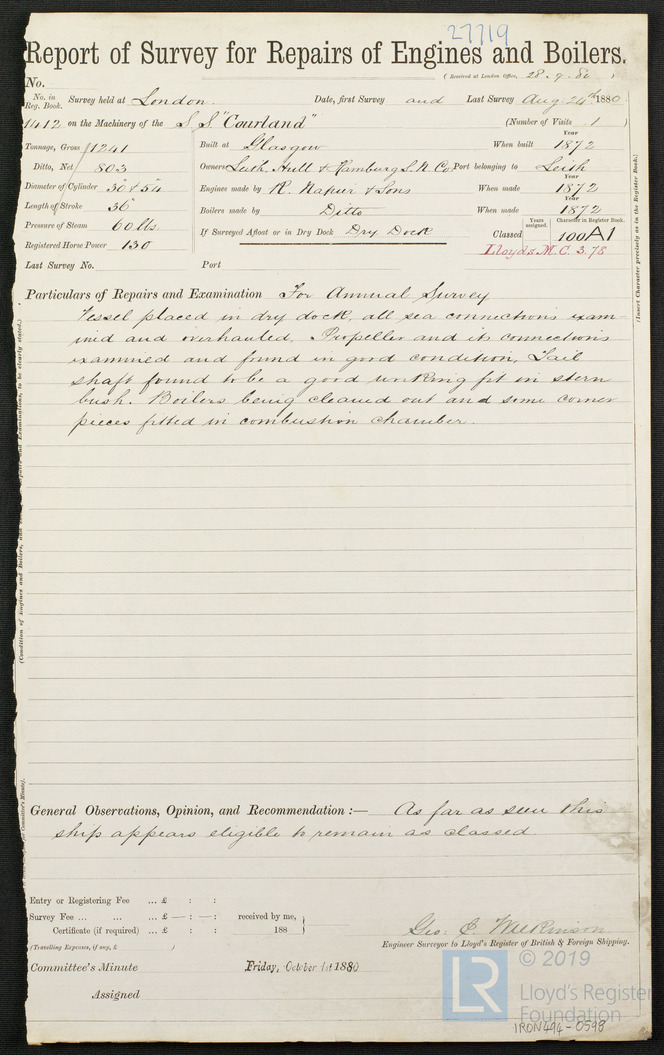 27719
Report of Survey for Repairs of Engines and Boilers.
(Received at London Office, 28.9.80 )
No.
No. in Reg. Book. Survey held at London. Date, first Survey and Last Survey Aug. 24th 1880
1412 on the Machinery of the S.S. "Courland" (Number of Visits 1 )
Tonnage, Gross 1241 Built at Glasgow When built Year 1872
Ditto, Net 803 Owners Leith, Hull & Hamburg S. N. Co. Port belonging to Leith
Diameter of Cylinder 30" & 54" Engines made by R. Napier & Sons When made Year 1872
Length of Stroke 36" Boilers made by Ditto When made Year 1872
Pressure of Steam 60 lbs. If Surveyed Afloat or in Dry Dock Dry Dock Classed Years assigned. Character in Register Book. 100A1
Registered Horse Power 130 Lloyds M.C. 3.78
Last Survey No. Port
(Insert Character precisely as in the Register Book.)
Particulars of Repairs and Examination For Annual Survey
Vessel placed in dry dock, all sea connections exam-
ined and overhauled, Propeller and its connections
examined and found in good condition, Tail
shaft found to be a good working fit in stern
bush. Boilers being cleaned out and some corner
pieces fitted in combustion chamber.
General Observations, Opinion, and Recommendation :— As far as seen this
ship appears eligible to remain as classed
Entry or Registering Fee ... £ : :
Survey Fee ... ... ... £ — : — : received by me,
Certificate (if required) ... £ : : 188
(Travelling Expenses, if any, £ )
Geo: C. Wilkinson
Engineer Surveyor to Lloyd's Register of British & Foreign Shipping.
Committee's Minute Friday, October 1st 1880
Assigned
LR
© 2019
Lloyd's Register
Foundation
IRON494-0598